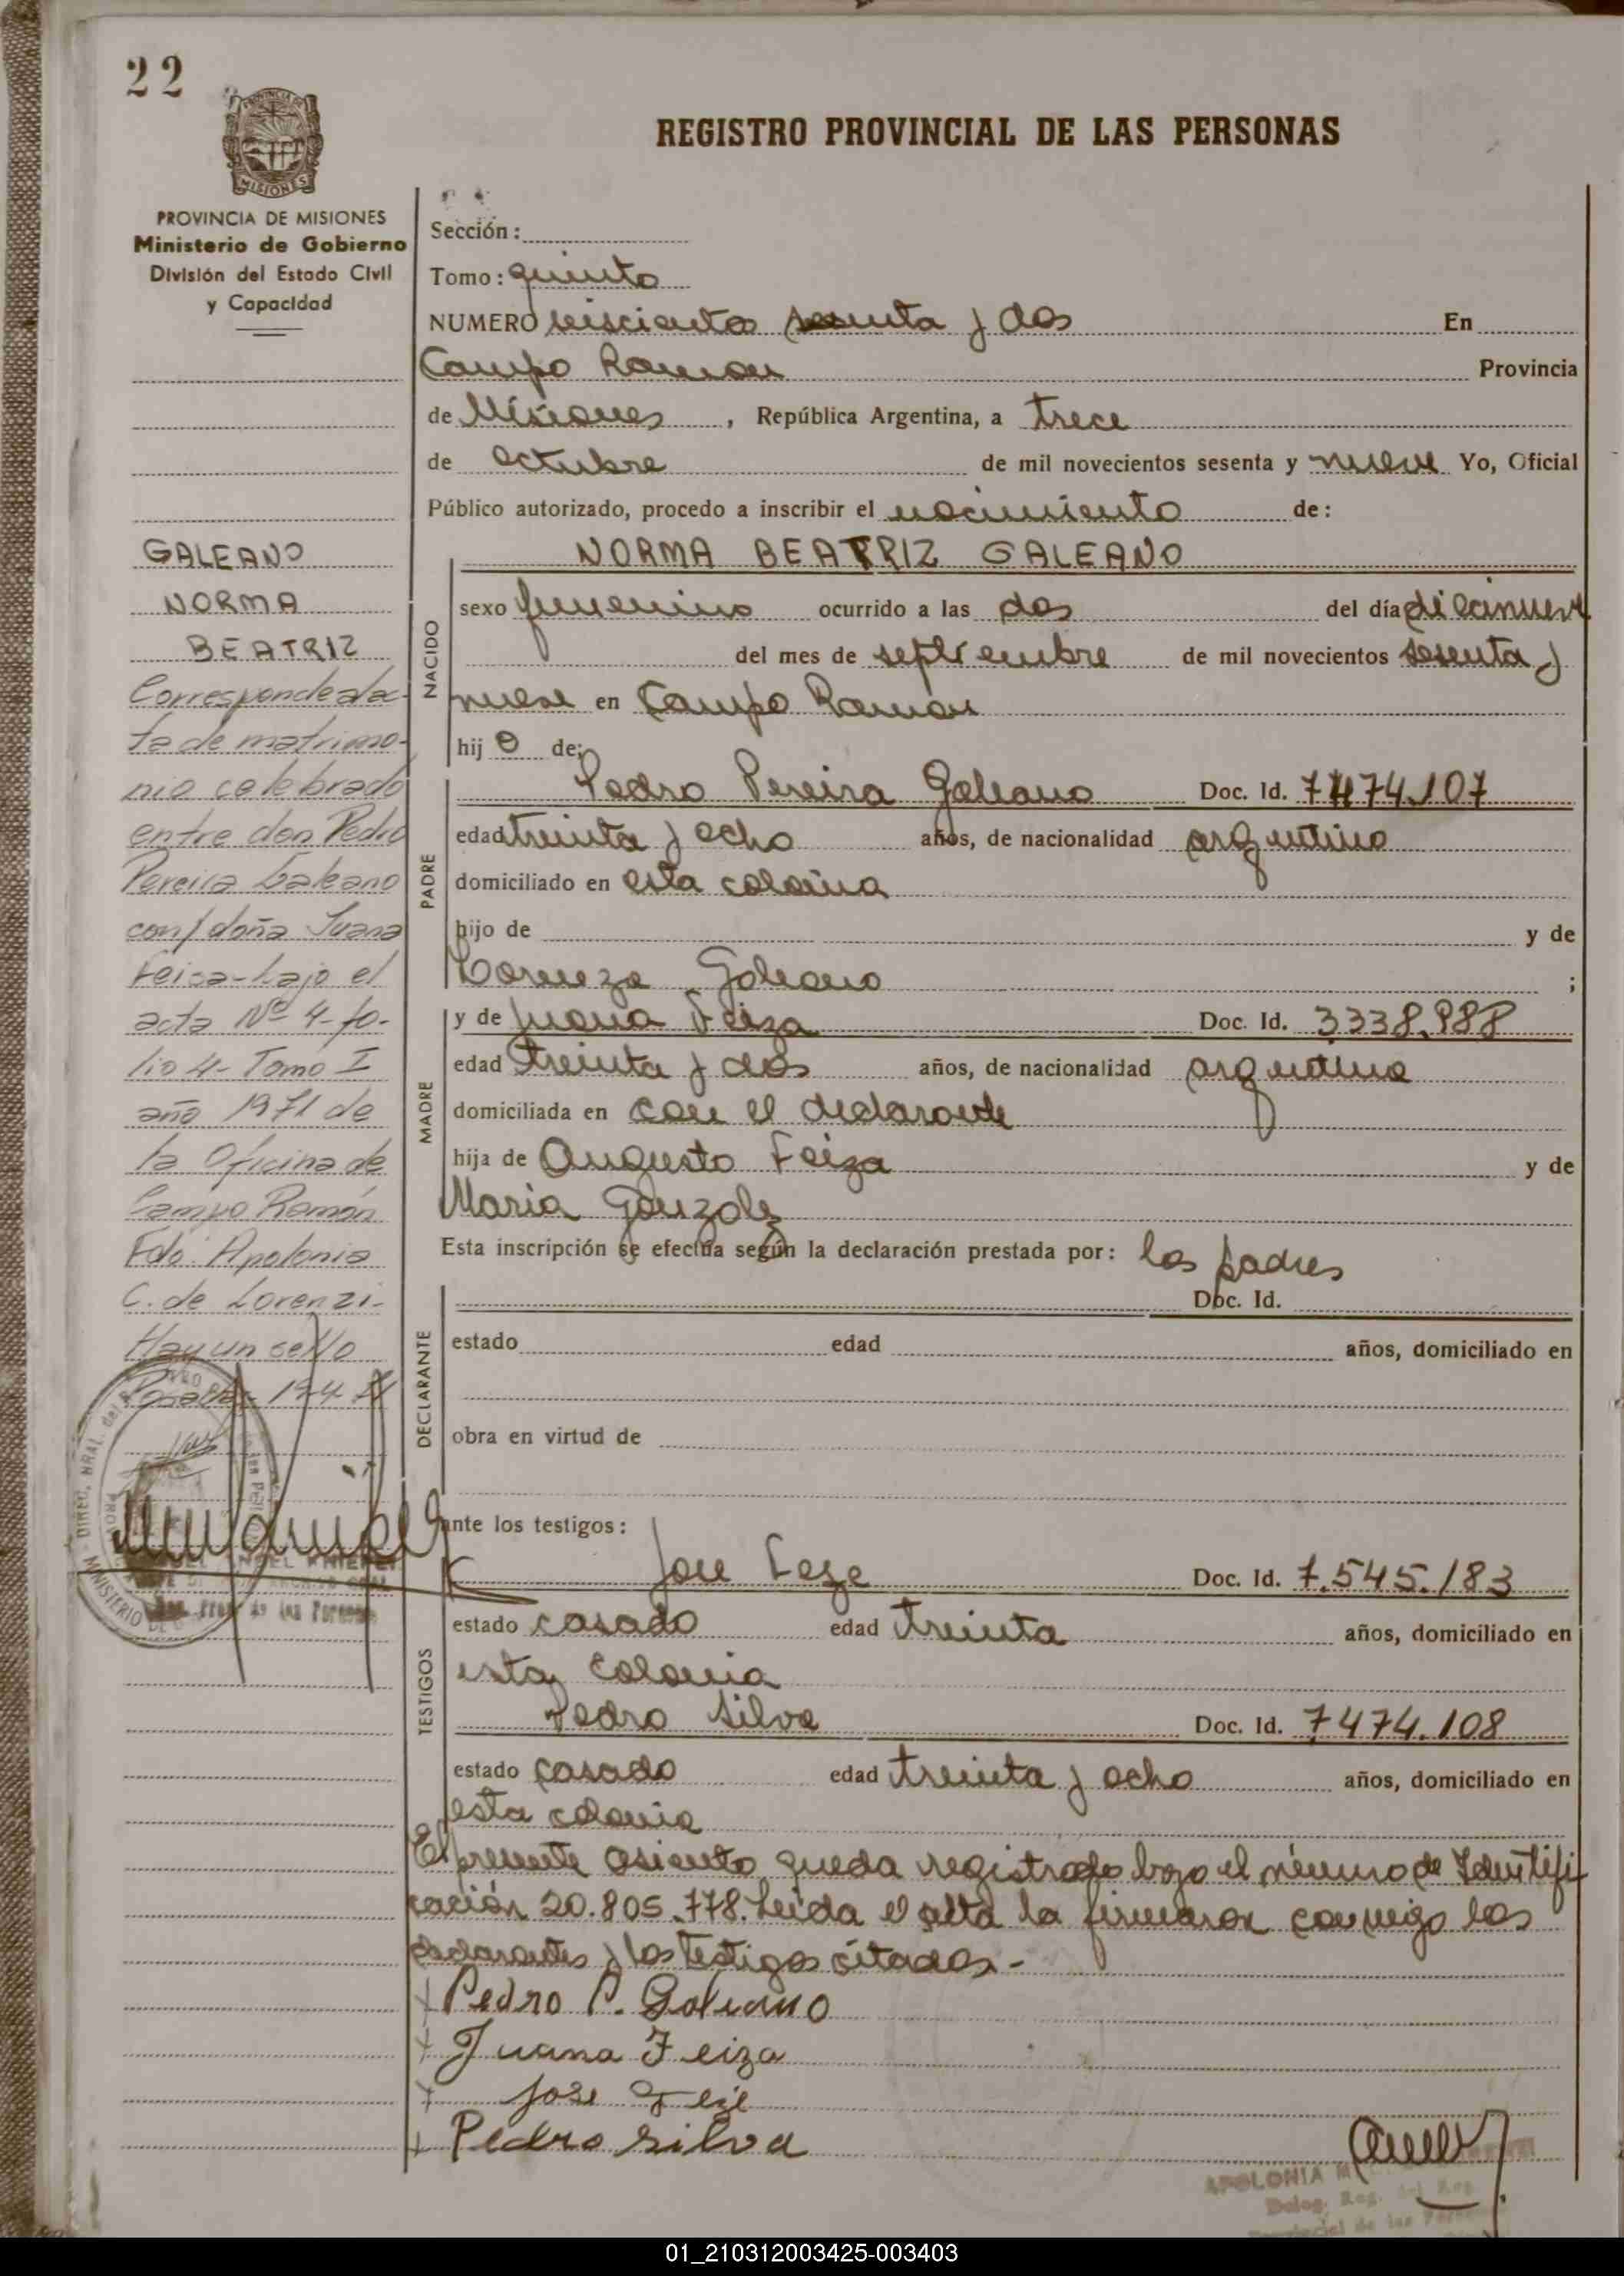 22
PROVINCIA DE
MISIONES
REGISTRO PROVINCIAL DE LAS PERSONAS
PROVINCIA DE MISIONES
Ministerio de Gobierno
División del Estado Civil
y Capacidad
GALEANO
NORMA
BEATRIZ
Corresponde al ac-
ta de matrimo-
nio celebrado
entre don Pedro
Pereira Galeano
con/doña Juana
Feiza-bajo el
acta Nº 4-fo-
lio 4- Tomo I
año 1971 de
la Oficina de
Campo Ramón
Fdo: Apolonia
C. de Lorenzi-
Hay un sello
Sección:
Tomo: quinto
NUMERO seiscientos sesenta y dos En
Campo Ramon Provincia
de Misiones, República Argentina, a trece
de octubre de mil novecientos sesenta y nueve Yo, Oficial
Público autorizado, procedo a inscribir el nacimiento de:
NORMA BEATRIZ GALEANO
NACIDO
sexo femenino ocurrido a las dos del día diecinueve
del mes de septiembre de mil novecientos sesenta y
nueve en Campo Ramón
hij a de:
PADRE
Pedro Pereira Galeano Doc. Id. 7474.107
edad treinta y ocho años, de nacionalidad argentino
domiciliado en esta colonia
hijo de y de
Galeano ;
MADRE
y de Juana Feiza Doc. Id. 3338.988
edad treinta y dos años, de nacionalidad argentina
domiciliada en con el declarante
hija de Augusto Feiza y de
Maria Gonzalez
Esta inscripción se efectúa según la declaración prestada por: los padres
DECLARANTE
Doc. Id.
estado edad años, domiciliado en
obra en virtud de
ante los testigos:
TESTIGOS
Jose Doc. Id. 7.545.183
estado casado edad treinta años, domiciliado en
esta colonia
Pedro Silva Doc. Id. 7474.108
estado casado edad treinta y ocho años, domiciliado en
esta colonia
El presente asiento queda registrado bajo el número de Identifi
cación 20.805.778. Leida el acta la firmaron conmigo los
declarantes y los testigos citados.-
Pedro P. Galeano
Juana Feiza
Jose
Pedro Silva
APOLONIA
01_210312003425-003403